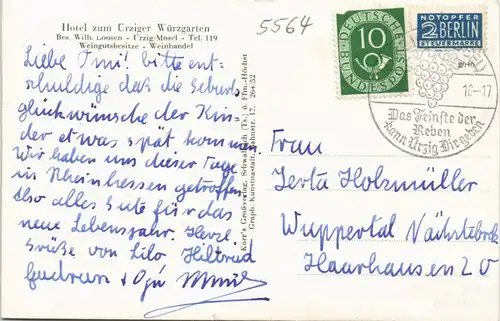 Hotel zum Ürziger Würzgarten
Bes. Wilh. Loosen - Ürzig/Mosel - Tel. 119
Weingutsbesitz - Weinhandel
5564
Liebe Omi! bitte ent-
schuldige daß die Geburts-
glückwünsche der Kin-
der etwas spät kommen.
Wir haben uns dieser Tage
in Rheinhessen getroffen
Also alles Gute für das
neue Lebensjahr. Herzl.
Grüße von Lilo Hiltrud
Gudrun + Opi
Korr's Großverlag, Schwalbach (Ts.) u. Ffm.-Höchst
Graph. Kunstanstalt, 17. 264/52
DEUTSCHE
10
BUNDESPOST
NOTOPFER
2 BERLIN
STEUERMARKE
18.-17
Das Feinste der
Reben
kann Ürzig Dir geben
Frau
Herta Holzmüller
Wuppertal
Haarhausen 20